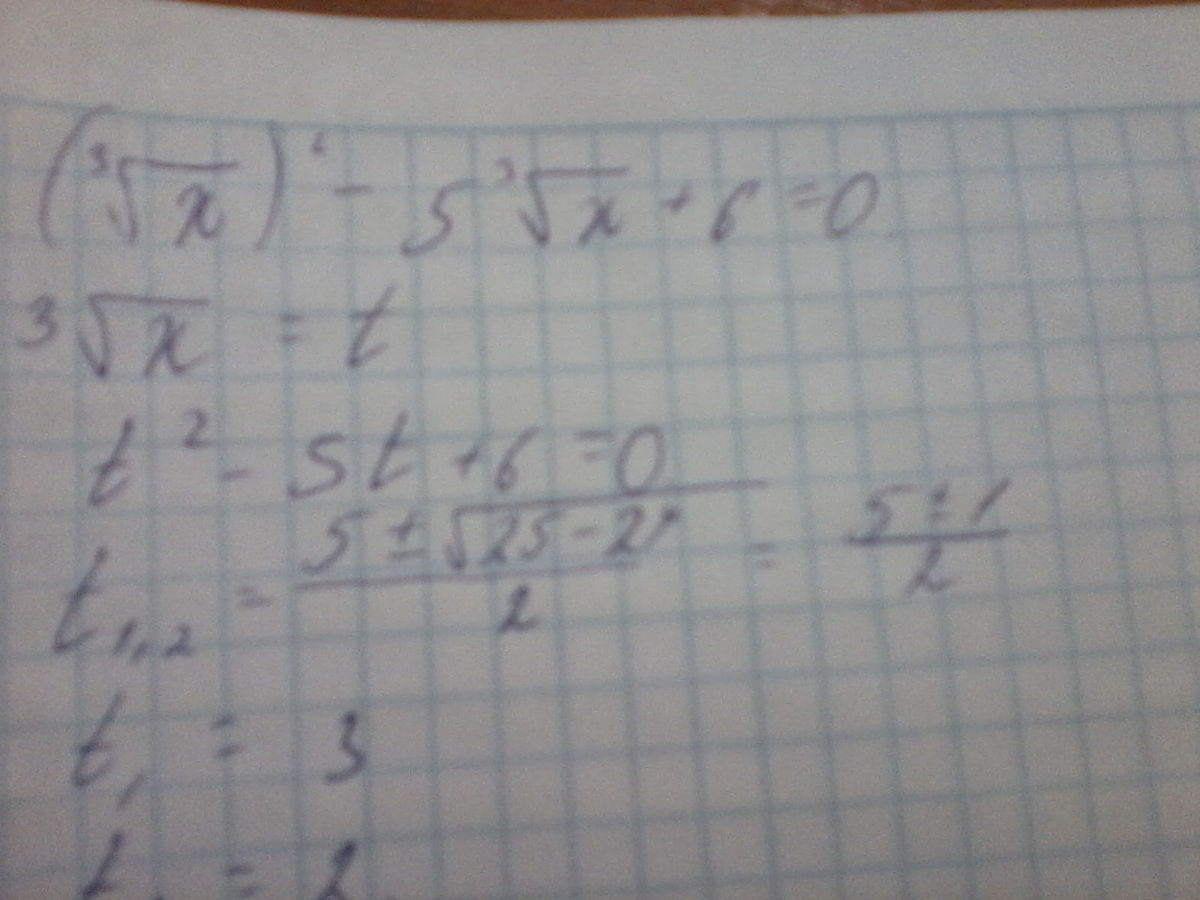 (³√x)² - 5 ³√x + 6 = 0
³√x = t
t² - 5t + 6 = 0
t₁,₂ = (5 ± √(25 - 24))/2 = (5 ± 1)/2
t₁ = 3
t = 2